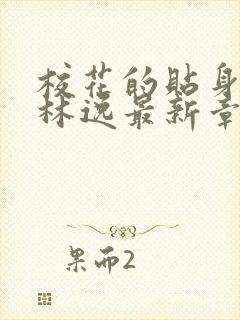 校花的贴身
林逸最新章
果而2